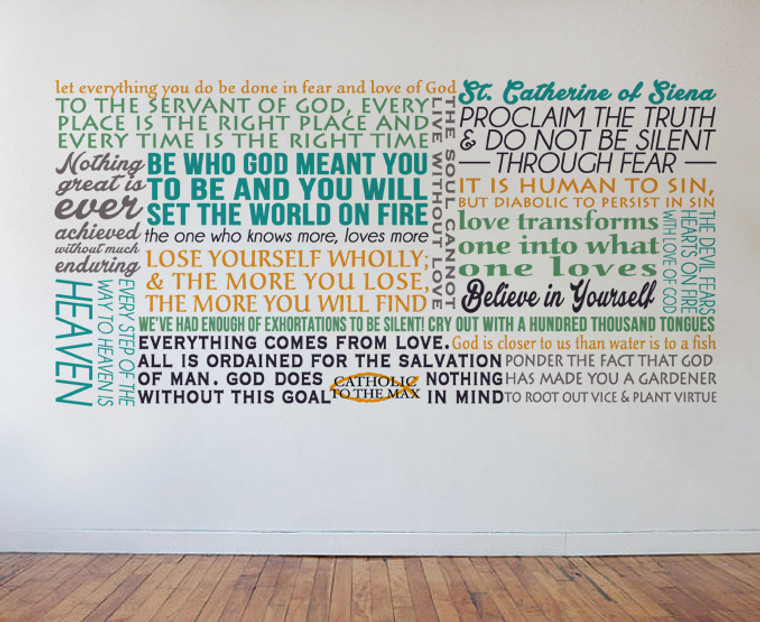 let everything you do be done in fear and love of God
TO THE SERVANT OF GOD, EVERY
PLACE IS THE RIGHT PLACE AND
EVERY TIME IS THE RIGHT TIME
THE SOUL CANNOT
LIVE WITHOUT LOVE
St. Catherine of Siena
PROCLAIM THE TRUTH
& DO NOT BE SILENT
THROUGH FEAR
Nothing
great is
ever
achieved
without much
enduring
BE WHO GOD MEANT YOU
TO BE AND YOU WILL
SET THE WORLD ON FIRE
the one who knows more, loves more
LOSE YOURSELF WHOLLY;
& THE MORE YOU LOSE,
THE MORE YOU WILL FIND
IT IS HUMAN TO SIN,
BUT DIABOLIC TO PERSIST IN SIN
love transforms
one into what
one loves
THE DEVIL FEARS
HEARTS ON FIRE
WITH LOVE OF GOD
Believe in Yourself
EVERY STEP OF THE
WAY TO HEAVEN IS
HEAVEN
WE'VE HAD ENOUGH OF EXHORTATIONS TO BE SILENT! CRY OUT WITH A HUNDRED THOUSAND TONGUES
EVERYTHING COMES FROM LOVE.
ALL IS ORDAINED FOR THE SALVATION
OF MAN. GOD DOES NOTHING
WITHOUT THIS GOAL IN MIND
CATHOLIC
TO THE MAX
God is closer to us than water is to a fish
PONDER THE FACT THAT GOD
HAS MADE YOU A GARDENER
TO ROOT OUT VICE & PLANT VIRTUE